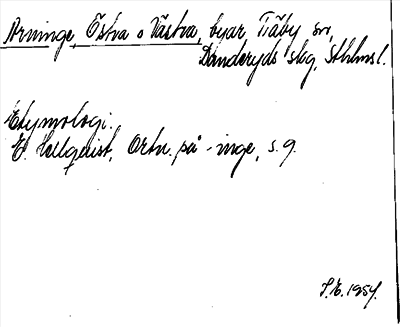 Arninge, Östra o Västra, byar Täby sn,
Danderyds slag, Sthlmsl.
Etymologi.
E. Hellquist, Ortn. på -inge, s. 9.
S.E. 1954.